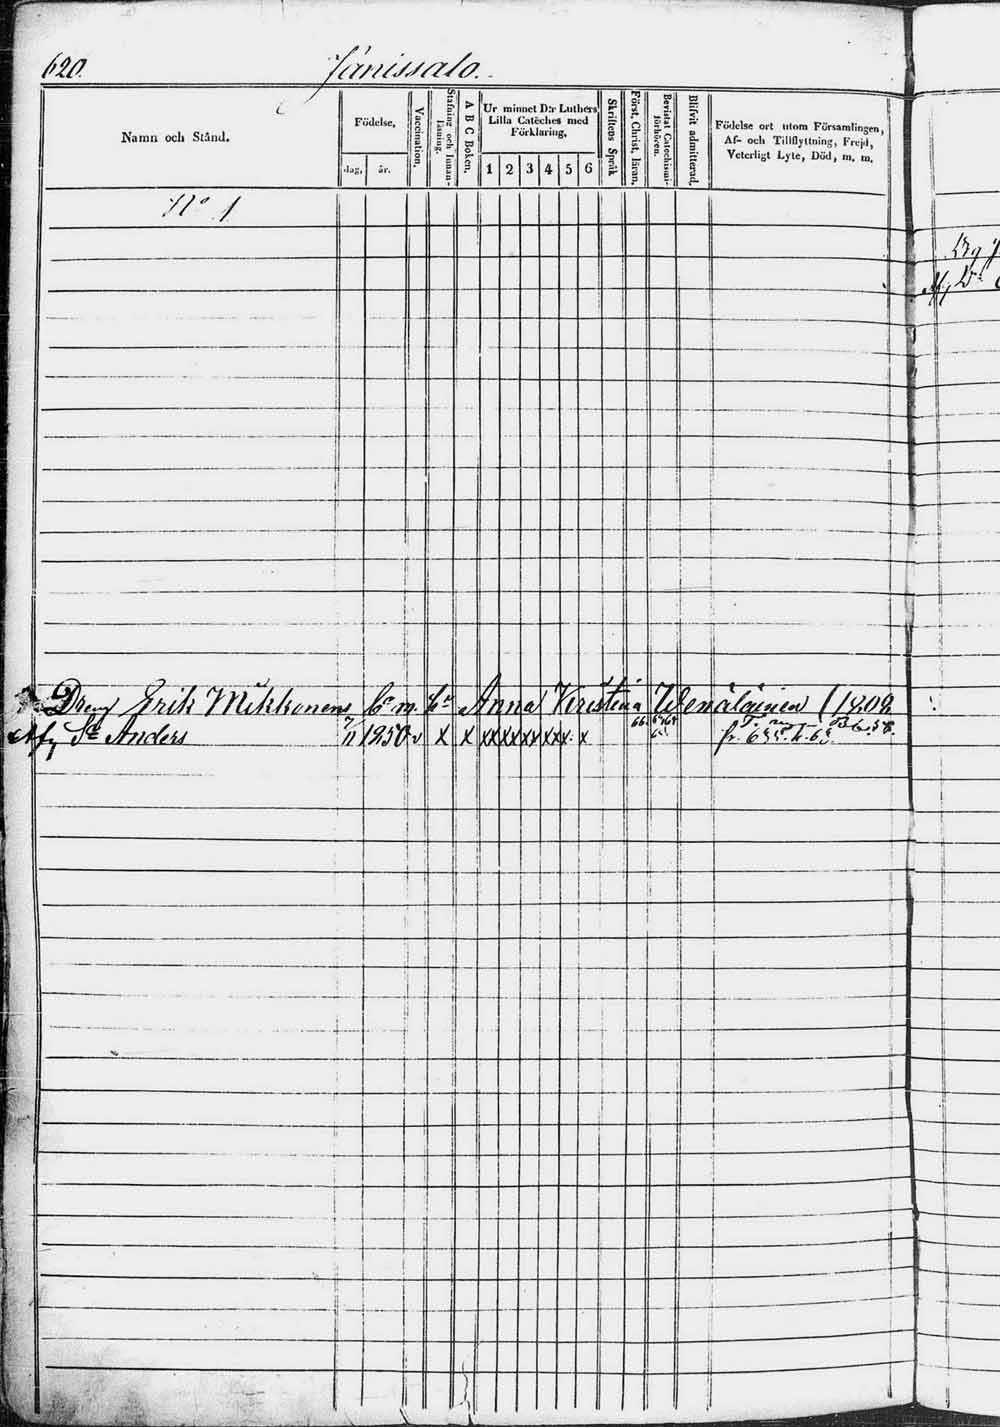 620. Jänissalo.
Namn och Stånd.
Födelse,
dag, år.
Vaccination.
Stafning och Innan-läsning.
A B C Boken.
Ur minnet D:r Luthers Lilla Catèches med Förklaring,
1 2 3 4 5 6
Skriftens Språk
Först, Christ. läran.
Bevistat Catechismi-förhören.
Blifvit admitterad.
Födelse ort utom Församlingen,
Af- och Tillflyttning, Frejd,
Veterligt Lyte, Död, m. m.
N:o 1
Dreng Erik Mikkonens Anna Kristina Wenäläinen 1809
Sn Anders 7/11 1850 v x x xx xx xx xx x x